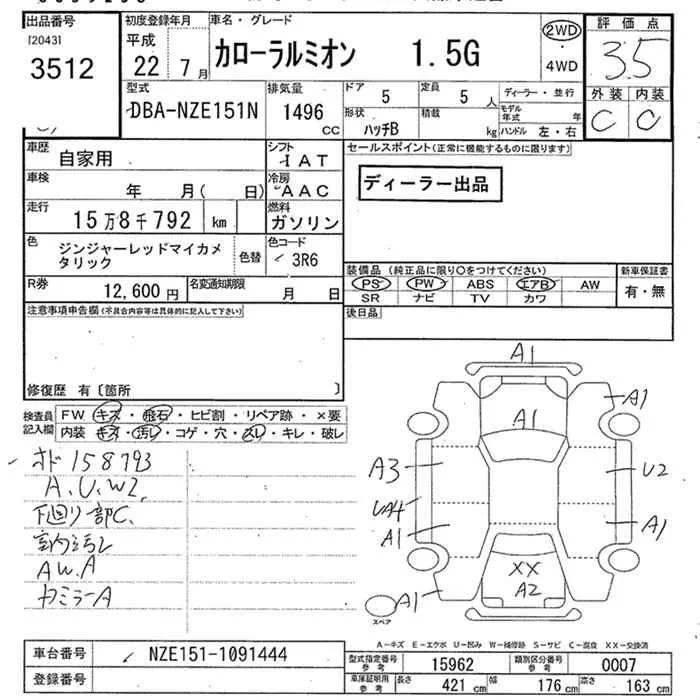 出品番号 初度登録年月 車名・グレード 評価点
[2043] 平成 カローラルミオン 1.5G 2WD 3.5
3512 22年 7月 ・4WD 外装 内装
型式 排気量 ドア 定員 ディーラー・並行 C C
DBA-NZE151N 1496 cc 5 5人 モデル年式 年
形状 積載
ハッチB kg ハンドル 左・右
車歴 シフト セールスポイント(正常に機能するものに限ります)
自家用 IAT
車検 冷房 ディーラー出品
年 月( 日) AAC
走行 燃料
15万8千792 km ガソリン
色 色コード
ジンジャーレッドマイカメタリック 色替 3R6
装備品(純正品に限り○をつけてください) 新車保証書
R券 名変通知期限 PS PW ABS エアB AW 有・無
12,600円 月 日 SR ナビ TV カワ
注意事項申告欄(不具合内容等は具体的に記入して下さい) 後日品
修復歴 有〔箇所 〕
検査員記入欄 FW キズ・飛石・ヒビ割・リペア跡・×要
内装 キズ・汚レ・コゲ・穴・スレ・キレ・破レ
オド158793
A.U.W2
下廻り部C.
室内汚レ
AW.A
カミラーA
A1
A1
A1
A3
U2
UA4
A1
A1
XX
A2
A1
スペア
A-キズ E-エクボ U-凹み W-補修跡 S-サビ C-腐食 XX-交換済
車台番号 NZE151-1091444 型式指定番号 参考 15962 類別区分番号 参考 0007
登録番号 車庫証明用 参考 長さ 421cm 幅 176cm 高さ 163cm